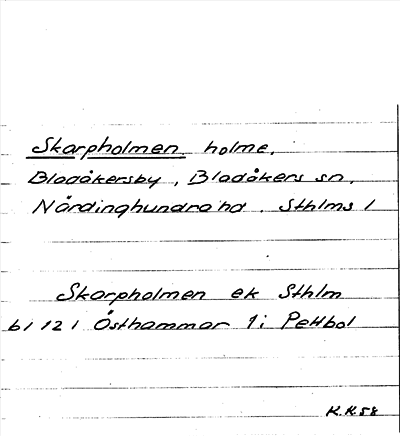 Skarpholmen, holme,
Bladåkersby, Bladåkers sn,
Närdinghundra hd. Sthlms l
Skarpholmen ek Sthlm
bl 121 Östhammar 1i Pettbol
K.K.58